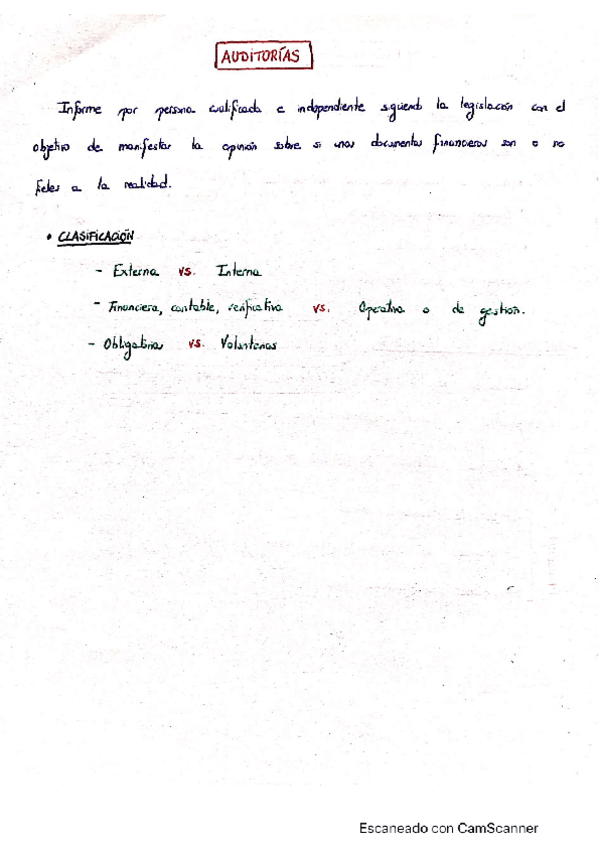 AUDITORÍAS
Informe por persona cualificada e independiente siguiendo la legislación con el
objetivo de manifestar la opinión sobre si unos documentos financieros son o no
fieles a la realidad.
• CLASIFICACIÓN
- Externa vs. Interna
- Financiera, contable, verificativa vs. Operativa o de gestion.
- Obligatorias vs. Voluntarias
Escaneado con CamScanner